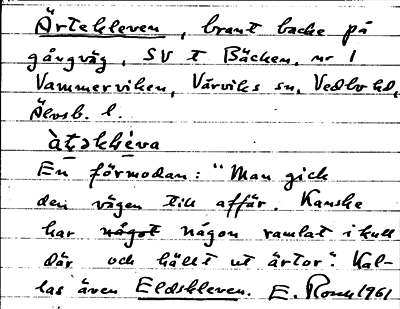 Ärtekleven, brant backe på
gångväg, SV t Bäcken, nr 1
Vammerviken, Värviks sn, Vedbo hd,
Älvsb. l.
En förmodan: "Man gick
den vägen till affär. Kanske
har något någon ramlat i kull
där och hällt ut ärtor". Kal-
las även Eldskleven. E. 1961